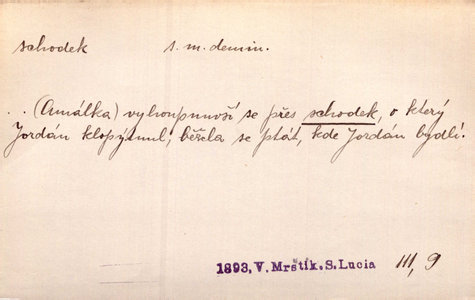 schodek s. m. demin.
. . (Amálka) vyhoupnuvši se přes schodek, o který
Jordán klopýtnul, běžela se ptát, kde Jordán bydlí.
1893, V. Mrštík. S. Lucia III, 9